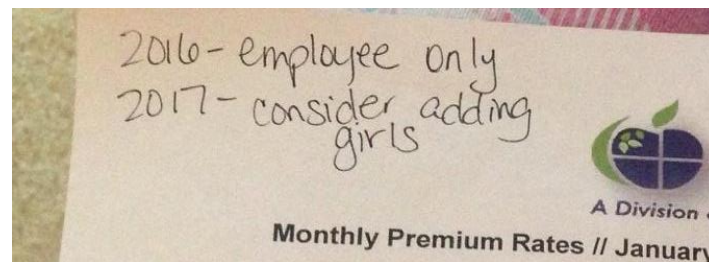 2016 - employee only
2017 - consider adding
girls
A Division
Monthly Premium Rates // January